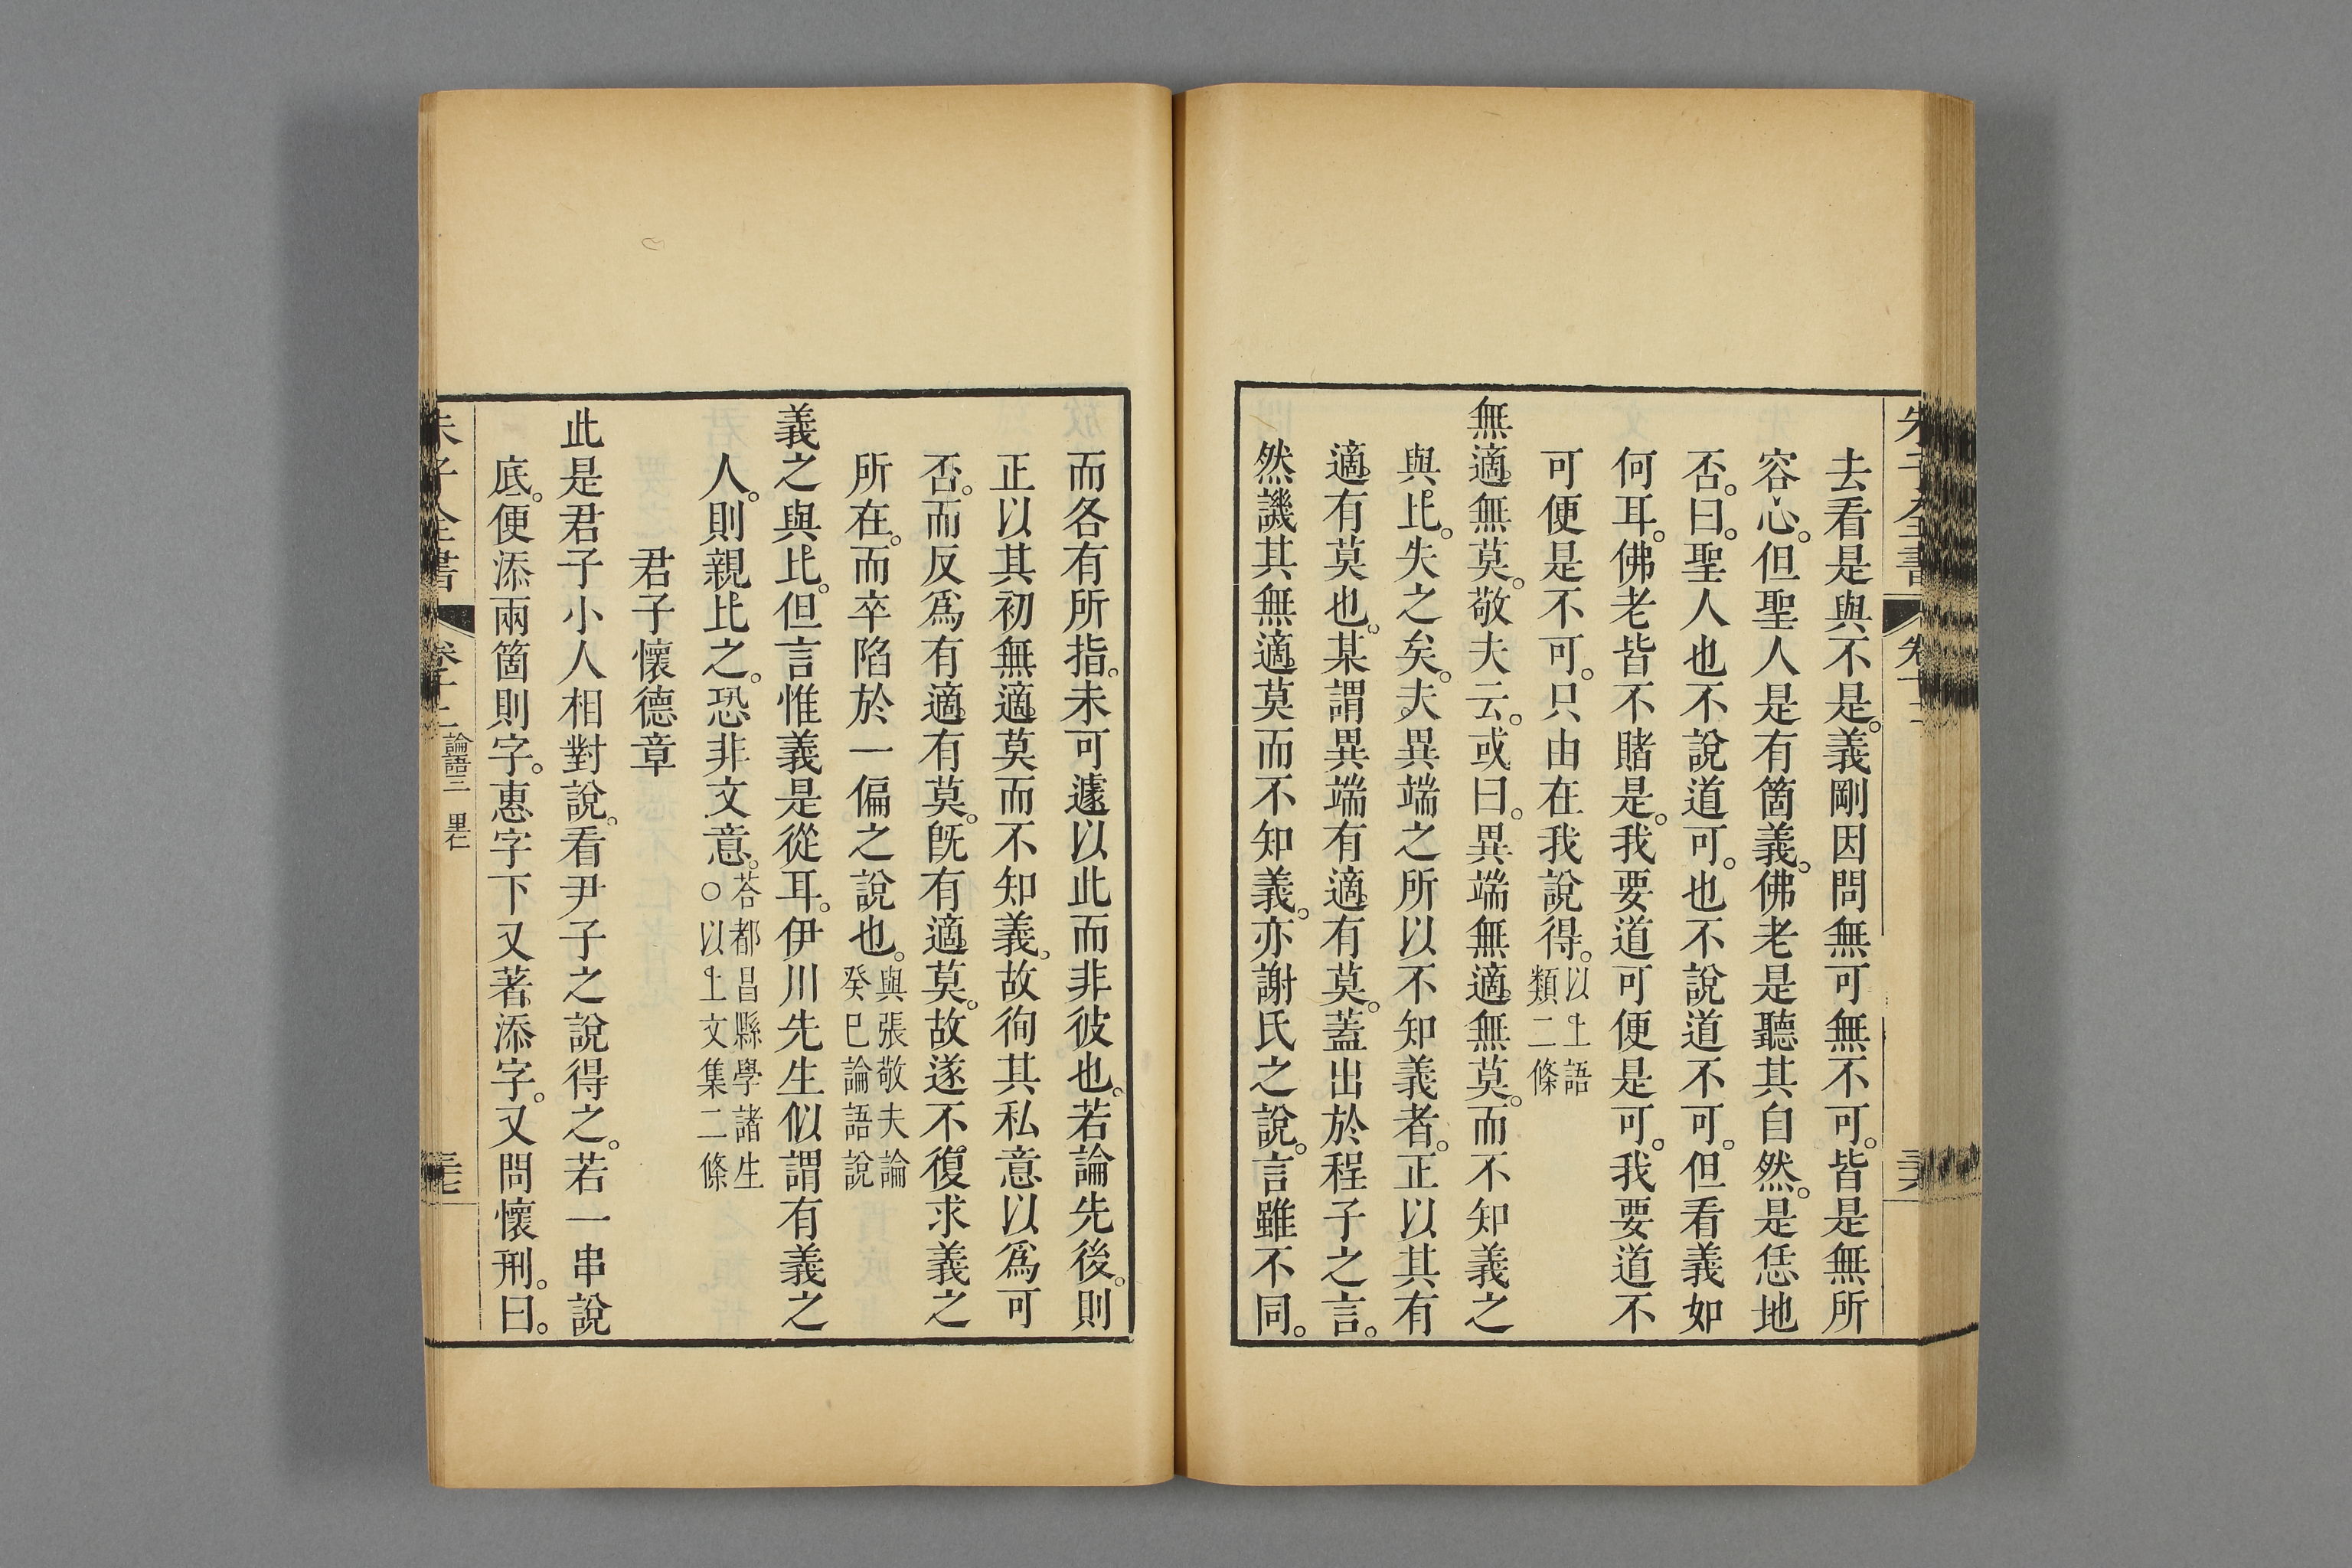 朱子全書 卷十二 三六
去看是與不是。義剛因問無可無不可。皆是無所
容心。但聖人是有箇義。佛老是聽其自然。是恁地
否。曰。聖人也不說道可。也不說道不可。但看義如
何耳。佛老皆不睹是。我要道可便是可。我要道不
可便是不可。只由在我說得。以上語類二條
無適無莫。敬夫云。或曰。異端無適無莫。而不知義之
與比。失之矣。夫異端之所以不知義者。正以其有
適有莫也。某謂異端有適有莫。蓋出於程子之言。
然譏其無適莫而不知義。亦謝氏之說。言雖不同。
而各有所指。未可遽以此而非彼也。若論先後。則
正以其初無適莫而不知義。故徇其私意以爲可
否。而反爲有適有莫。旣有適莫。故遂不復求義之
所在。而卒陷於一偏之說也。與張敬夫論癸巳論語說
義之與比。但言惟義是從耳。伊川先生似謂有義之
人。則親比之。恐非文意。荅都昌縣學諸生○以上文集二條
君子懷德章
此是君子小人相對說。看尹子之說得之。若一串說
底。便添兩箇則字。惠字下又著添字。又問懷刑。曰。
朱子全書 卷十二 論語三 里仁 三七